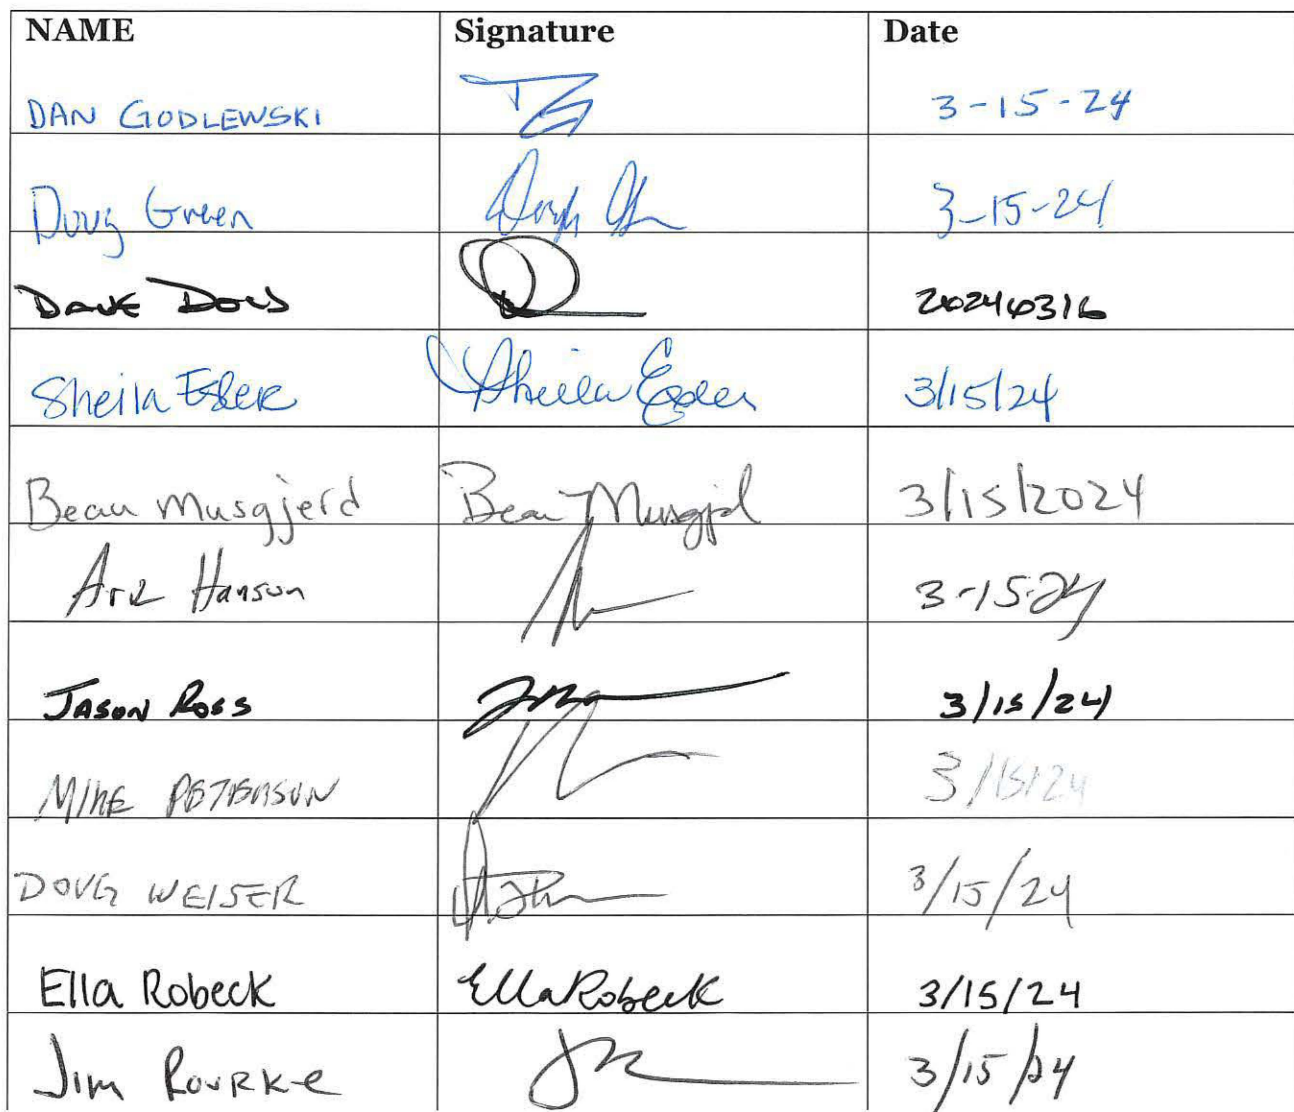 NAME Signature Date
DAN GODLEWSKI 3-15-24
Doug Green 3-15-24
DAVE 20240316
Sheila 3/15/24
Beau Musgjerd Beau Musgjd 3/15/2024
Hanson 3-15-24
JASON ROSS 3/15/24
MIKE PETERSON 3/15/24
DOUG WEISER 3/15/24
Ella Robeck Ella Robeck 3/15/24
Jim ROURKe 3/15/24